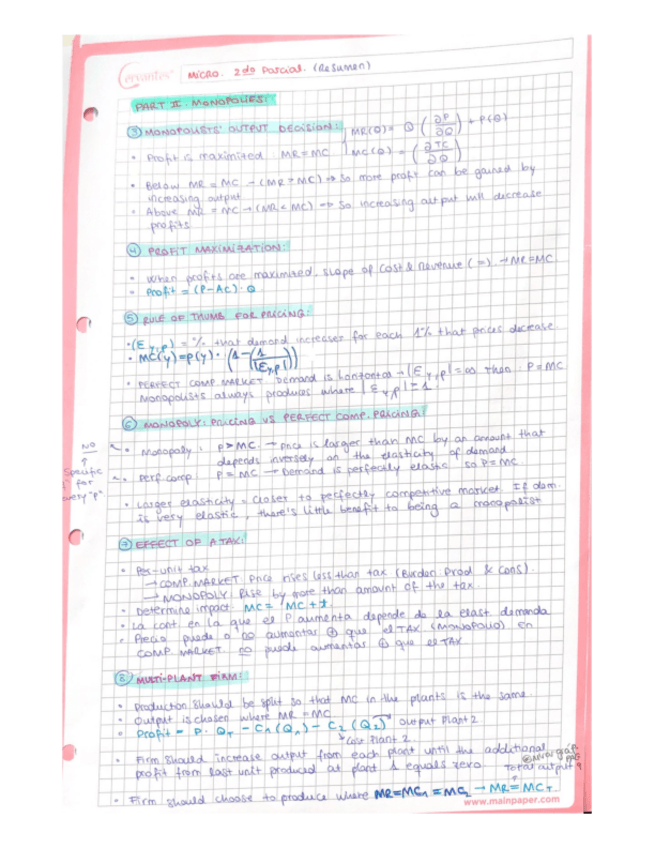 Cervantes
MICRO. 2do Parcial. (Resumen)
PART II. MONOPOLIES:
③ MONOPOLISTS' OUTPUT DECISION: MR(Q) = Q (∂P/∂Q) + P(Q)
• Profit is maximized MR=MC MC(Q) = (∂TC/∂Q)
• Below MR = MC → (MR > MC) → So more profit can be gained by
increasing output
• Above MR = MC → (MR < MC) → So increasing output will decrease
profits
④ PROFIT MAXIMIZATION:
• When profits are maximized, slope of cost & Revenue (=). → MR=MC
• Profit = (P-AC)·Q
⑤ RULE OF THUMB FOR PRICING:
• (E y,p) = % that demand increases for each 1% that prices decrease.
• MC(y) = p(y) · (1 - (1/|E y,p|))
• PERFECT COMP MARKET Demand is horizontal → |E y,p| = ∞ then P=MC
Monopolists always produces where |E y,p| ≥ 1
⑥ MONOPOLY: PRICING VS PERFECT COMP. PRICING:
• Monopoly: P>MC. → Price is larger than MC by an amount that
depends inversely on the elasticity of demand
• Perf comp P = MC → Demand is perfectly elastic so P=MC
NO
↑
Specific
for
every "p"
• Larger elasticity = Closer to perfectly competitive market. If dem.
is very elastic, there's little benefit to being a monopolist
⑦ EFFECT OF A TAX:
• Per-unit tax
→ COMP. MARKET: Price rises less than tax (Burden Prod & cons).
→ MONOPOLY: Rise by more than amount of the tax.
• Determine impact MC = MC + t.
• La cont en la que el P aumenta depende de la elast. demanda
• Precio puede o no aumentar ⊕ que el TAX (MONOPOLIO) en
COMP. MARKET. no puede aumentar ⊕ que el TAX
⑧ MULTI-PLANT FIRM:
• Production should be split so that MC in the plants is the same.
• Output is chosen where MR = MC
• Profit = P · QT - C1(Q1) - C2(Q2) → output Plant 2
↳ Cost Plant 2
• Firm should increase output from each plant until the additional
profit from last unit produced at plant 1 equals zero.
Total output
• Firm should choose to produce where MR=MC1=MC2 → MR=MCT
www.mainpaper.com